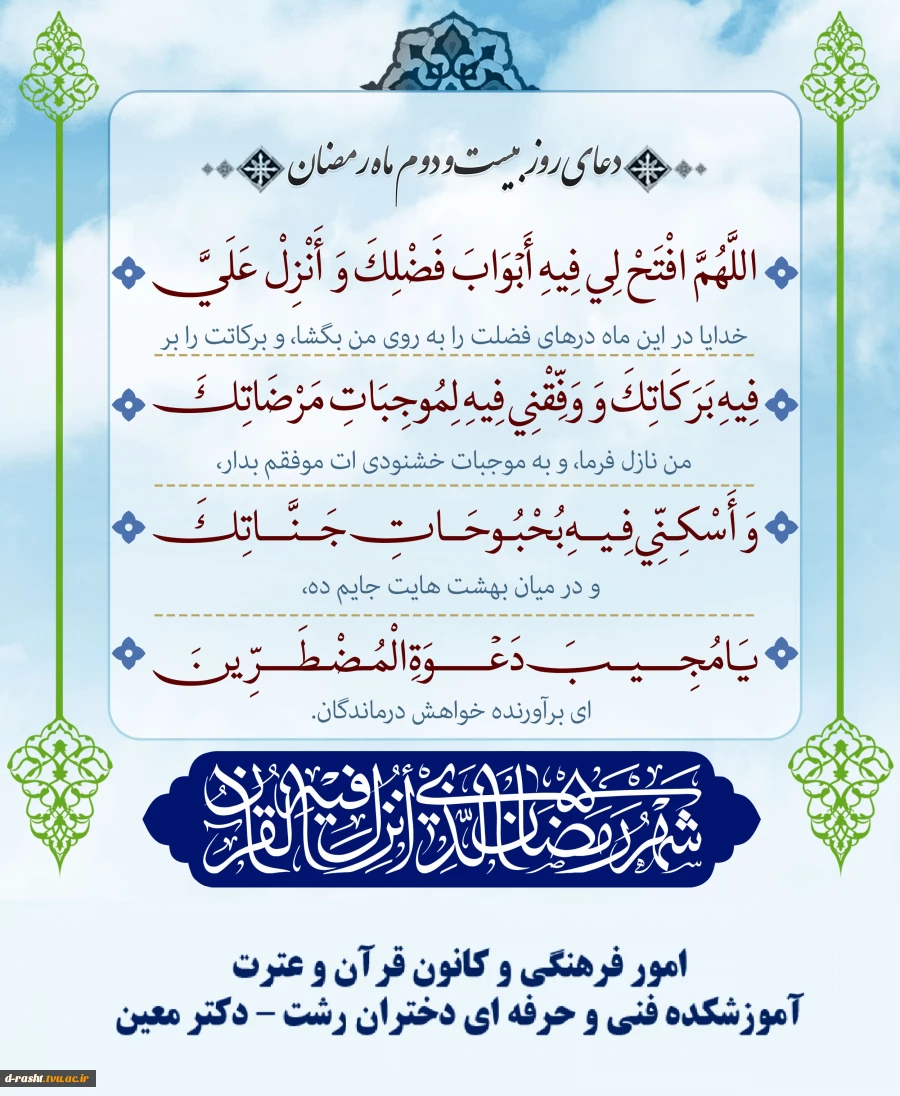 دعای روز بیست و دوم ماه رمضان
اللَّهُمَّ افْتَحْ لِي فِيهِ أَبْوَابَ فَضْلِكَ وَ أَنْزِلْ عَلَيَّ
خدایا در این ماه درهای فضلت را به روی من بگشا، و برکاتت را بر
فِيهِ بَرَكَاتِكَ وَ وَفِّقْنِي فِيهِ لِمُوجِبَاتِ مَرْضَاتِكَ
من نازل فرما، و به موجبات خشنودی ات موفقم بدار،
وَ أَسْكِنِّي فِيهِ بُحْبُوحَاتِ جَنَّاتِكَ
و در میان بهشت هایت جایم ده،
يَا مُجِيبَ دَعْوَةِ الْمُضْطَرِّينَ
ای برآورنده خواهش درماندگان.
شهر رمضان الذي أنزل فيه القرآن
امور فرهنگی و کانون قرآن و عترت
آموزشکده فنی و حرفه ای دختران رشت - دکتر معین
d-rasht.tvu.ac.ir